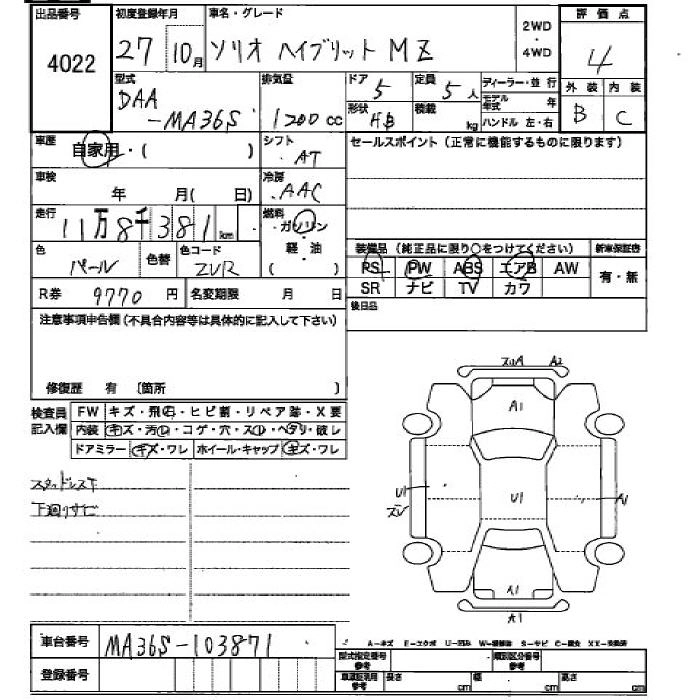 出品番号 初度登録年月 車名・グレード 評価点
4022 27 10月 ソリオ ハイブリット MZ 2WD・4WD 4
型式 排気量 ドア 定員 ディーラー・並行 外装 内装
DAA-MA36S 1200cc 5 5人 モデル年式 年 B C
形状 積載 ハンドル 左・右
HB kg
車歴 自家用・( ) シフト セールスポイント(正常に機能するものに限ります)
AT
車検 年 月( 日) 冷房
AAC
走行 11万8千381km 燃料 ガソリン・軽・油( )
色 色替 色コード 装備品(純正品に限り○をつけてください) 新車保証書
パール ZVR PS PW ABS エアB AW 有・無
SR ナビ TV カワ
R券 9770円 名変期限 月 日 後日品
注意事項申告欄(不具合内容等は具体的に記入して下さい)
修復歴 有 〔箇所 〕
検査員記入欄 FW キズ・飛石・ヒビ割・リペア跡・X要
内装 キズ・汚レ・コゲ・穴・スレ・ヘタリ・破レ
ドアミラー キズ・ワレ ホイール・キャップ キズ・ワレ
スタッドレス下
下廻りサビ
ズリA A2
A1
U1 U1 A1
A1
A1
車台番号 MA36S-103871
A-キズ E-エクボ U-凹み S-サビ C-腐食 XX-交換済
登録番号 型式指定番号 参考 類別区分番号 参考
長さ cm 幅 cm 高さ cm